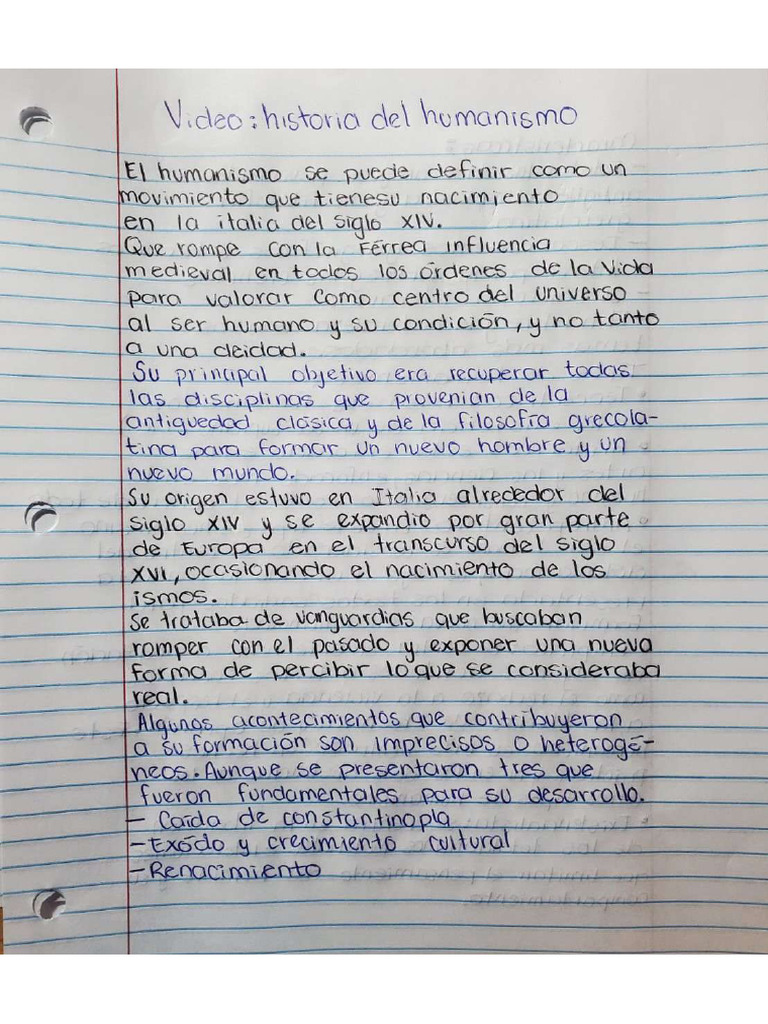 Video: historia del humanismo
El humanismo se puede definir como un
movimiento que tienesu nacimiento
en la italia del siglo XIV.
Que rompe con la Férrea influencia
medieval en todos los órdenes de la Vida
para valorar como centro del universo
al ser humano y su condición, y no tanto
a una deidad.
Su principal objetivo era recuperar todas
las disciplinas que provenian de la
antiguedad clásica y de la filosofía grecola-
tina para formar un nuevo hombre y un
nuevo mundo.
Su origen estuvo en Italia alrededor del
siglo XIV y se expandio por gran parte
de Europa en el transcurso del siglo
XVI, ocasionando el nacimiento de los
ismos.
Se trataba de vanguardias que buscaban
romper con el pasado y exponer una nueva
forma de percibir lo que se consideraba
real.
Algunos acontecimientos que contribuyeron
a su formación son imprecisos o heterogé-
neos. Aunque se presentaron tres que
fueron fundamentales para su desarrollo.
- Caída de constantinopla
- Exódo y crecimiento cultural
- Renacimiento